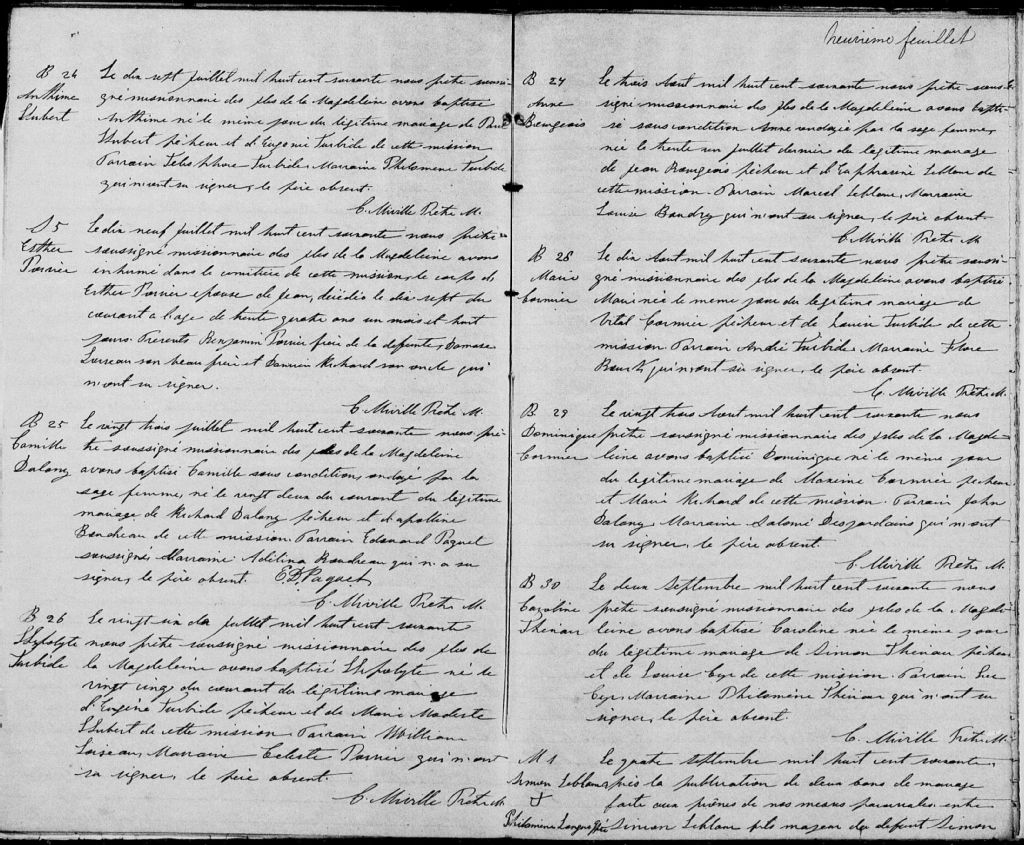 B 24
Anthime
Hubert
Le dix sept juillet mil huit cent soixante nous prêtre soussi-
gné missionnaire des îsles de la Magdeleine avons baptisé
Anthime né le même jour du légitime mariage de Paul
Hubert pêcheur et d'Eugénie Turbide de cette mission
Parrain Telesphore Turbide, Marraine Philomene Turbide
qui n'ont su signer, le père absent.
C. Miville Prêtre M.
S 5
Esther
Poirier
Le dix neuf juillet mil huit cent soixante nous prêtre
soussigné missionnaire des îsles de la Magdeleine avons
inhumé dans le cimetière de cette mission, le corps de
Esther Poirier epouse de Jean, décédée le dix sept du
courant a l'age de trente quatre ans un mois et huit
jours. Presents Benjamin Poirier frère de la defunte, Damase
son beau frère et Damien Richard son oncle qui
n'ont su signer.
C. Miville Prêtre M.
B 25
Camille
Dalong
Le vingt trois juillet mil huit cent soixante nous prê-
tre soussigné missionnaire des îsles de la Magdeleine
avons baptisé Camille sous condition, ondoyé par la
sage femme, né le vingt deux du courant du légitime
mariage de Richard Dalong pêcheur et d'Apolline
Boudreau de cette mission. Parrain Edouard Paquet
soussigné, Marraine Adélina Boudreau qui n'a su
signer, le père absent. E.D. Paquet
C. Miville Prêtre M.
B 26
Hypolyte
Turbide
Le vingt six du juillet mil huit cent soixante
nous prêtre soussigné missionnaire des îsles de
la Magdeleine avons baptisé Hypolyte né le
vingt cinq du courant du légitime mariage
d'Eugène Turbide pêcheur et de Marie Modeste
Hubert de cette mission, Parrain William
Loiseau, Marraine Celeste Poirier qui n'ont
su signer, le père absent.
C. Miville Prêtre M.
neuvième feuillet
B 27
Anne
Bourgeois
Le trois Aout mil huit cent soixante nous prêtre sous
signé missionnaire des îsles de la Magdeleine avons bapti-
sé sous condition Anne ondoyée par la sage femme,
née le trente un juillet dernier du légitime mariage
de Jean Bourgeois pêcheur et d'Euphrasine Leblanc de
cette mission. Parrain Marcel Leblanc, Marraine
Louise Boudry qui n'ont su signer, le père absent.
C. Miville Prêtre M.
B 28
Marie
Cormier
Le dix Aout mil huit cent soixante nous prêtre soussi-
gné missionnaire des îsles de la Magdeleine avons baptisé
Marie née le même jour du légitime mariage de
Vital Cormier pêcheur et de Louise Turbide de cette
mission Parrain André Turbide, Marraine Flore
qui n'ont su signer, le père absent.
C. Miville Prêtre M.
B 29
Dominique
Cormier
Le vingt trois Aout mil huit cent soixante nous
prêtre soussigné missionnaire des îsles de la Magde-
leine avons baptisé Dominique né le même jour
du légitime mariage de Maxime Cormier pêcheur
et Marie Richard de cette mission. Parrain John
Dalong, Marraine Salomé Desjardains qui n'ont
su signer, le père absent.
C. Miville Prêtre M.
B 30
Caroline
Theriau
Le deux Septembre mil huit cent soixante nous
prêtre soussigné missionnaire des îsles de la Magde-
leine avons baptisé Caroline née le même jour
du légitime mariage de Simon Theriau pêcheur
et de Louise Cyr de cette mission. Parrain Luc
Cyr, Marraine Philomène Theriau qui n'ont su
signer, le père absent.
C. Miville Prêtre M.
M 1
Simon Leblanc
+
Philomène
Le quatre septembre mil huit cent soixante,
après la publication de deux bans de mariage
faite aux prônes de nos messes paroissiales entre
Simon Leblanc fils majeur du defunt Simon